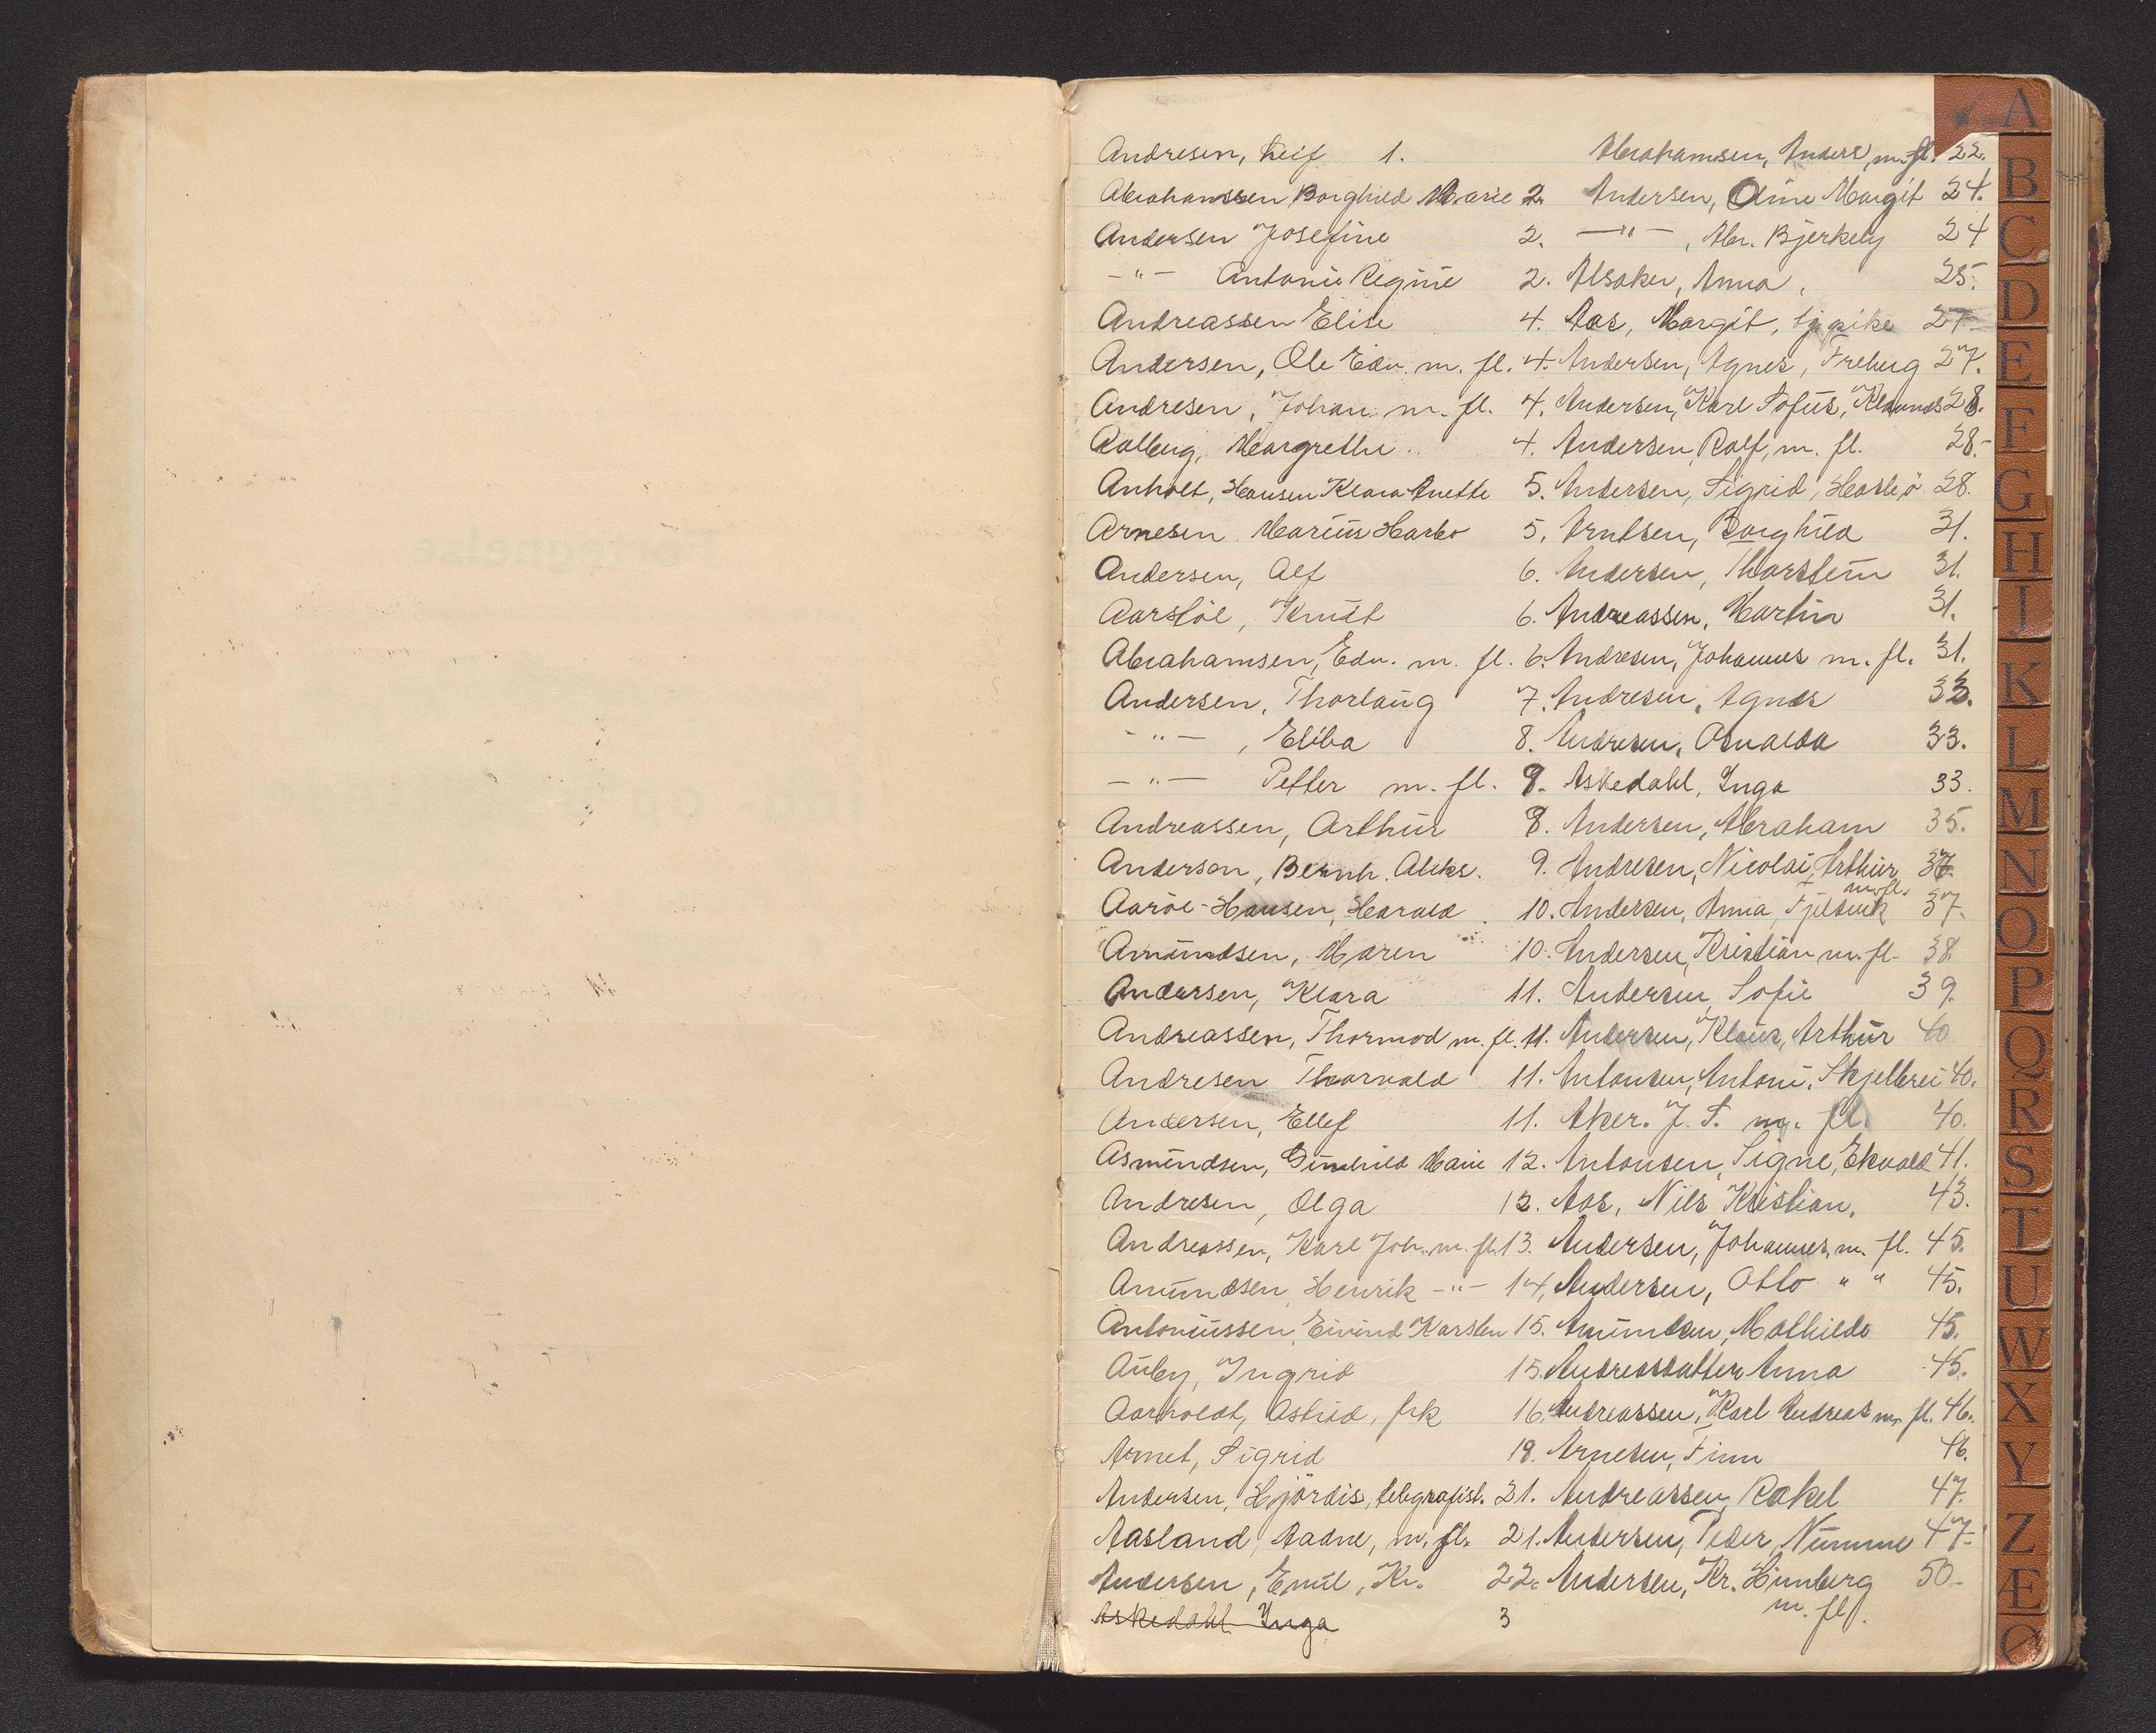 Andresen, Leif 1.
Abrahamssen Borghild Marie 2.
Andersen Josefine 2.
-"- Antonie Regine 2.
Andreassen Elise 4.
Andersen, Ole Edv. m. fl. 4.
Andresen, Johan m. fl. 4.
Aalberg, Margrethe 4.
Anholt, Hansen Klara Anette 5.
Arnesen Marius Harbo 5.
Andersen, Alf 6.
Aarstöl, Knut 6.
Abrahamsen, Edv. m. fl. 6.
Andersen, Thorlaug 7.
-"-, Eliba 8.
-"- Petter m. fl. 8.
Andreassen, Arthur 8.
Anderson, Bernh. Aleks. 9.
Aaröe-Hansen, Harald 10.
Amundsen, Maren 10.
Andersen, Klara 11.
Andreassen, Thormod m. fl. 11.
Andresen Thorvald 11.
Andersen, Ellef 11.
Asmundsen, Gunhild Marie 12.
Andresen, Olga 12.
Andreassen, Karl Joh. m. fl. 13.
Amundsen, Henrik -"- 14.
Antoniussen, Eivind Karsten 15.
Auby, Ingrid 15.
Aarholdt, Astrid, frk 16.
Arnet, Sigrid 18.
Andersen, Hjördis, telegrafist. 21.
Aasland, Aadne, m. fl. 21.
Andersen, Emil, Kr. 22.
Askedahl Inga 3
Abrahamsen, Anders, m. fl. 22.
Andersen, Margit 24.
-"-, Abr. Bjerkely 24
Alsaker, Anna, 25.
Aas, Margit, tj.pike 27
Andersen, Agnes, Freberg 27.
Andersen, Karl Sofus, 28.
Andersen, Rolf, m. fl. 28.
Andersen, Sigrid, Hasleö 28.
Arntsen, Borghild 31.
Andersen, Thorstein 31.
Andreassen, Martin 31.
Andresen, Johannes m. fl. 31.
Andresen, Agnes 33.
Andresen, Osvalda 33.
Askedahl, Inga 33.
Andersen, Abraham 35.
Andresen, Nicolai, Arthur, m. fl. 37.
Andersen, Anna, Fjeldvik 37.
Andersen, Kristian m. fl. 38.
Andersen Sofie 39.
Andersen, Klaus, Arthur 40
Antonsen, Antoni, Skjellerei 40.
Aker. J. S. m. fl. 40.
Antonsen, Signe, Ekvald 41.
Aas, Nils Kristian. 43.
Andersen, Johannes, m. fl. 45.
Andersen, Otto " " 45.
Amundsen, Mathilde 45.
Andreasdatter Anna 45.
Andreassen, Karl Andreas m. fl. 46.
Arnesen, Finn 46.
Andreassen, Rakel 47.
Andersen, Peder, Numme 47.
Andersen, Kr. Himberg m. fl. 50
A
B
C
D
E
F
G
H
I
K
L
M
N
O
P
Q
R
S
T
U
W
X
Y
Z
Æ
Ø